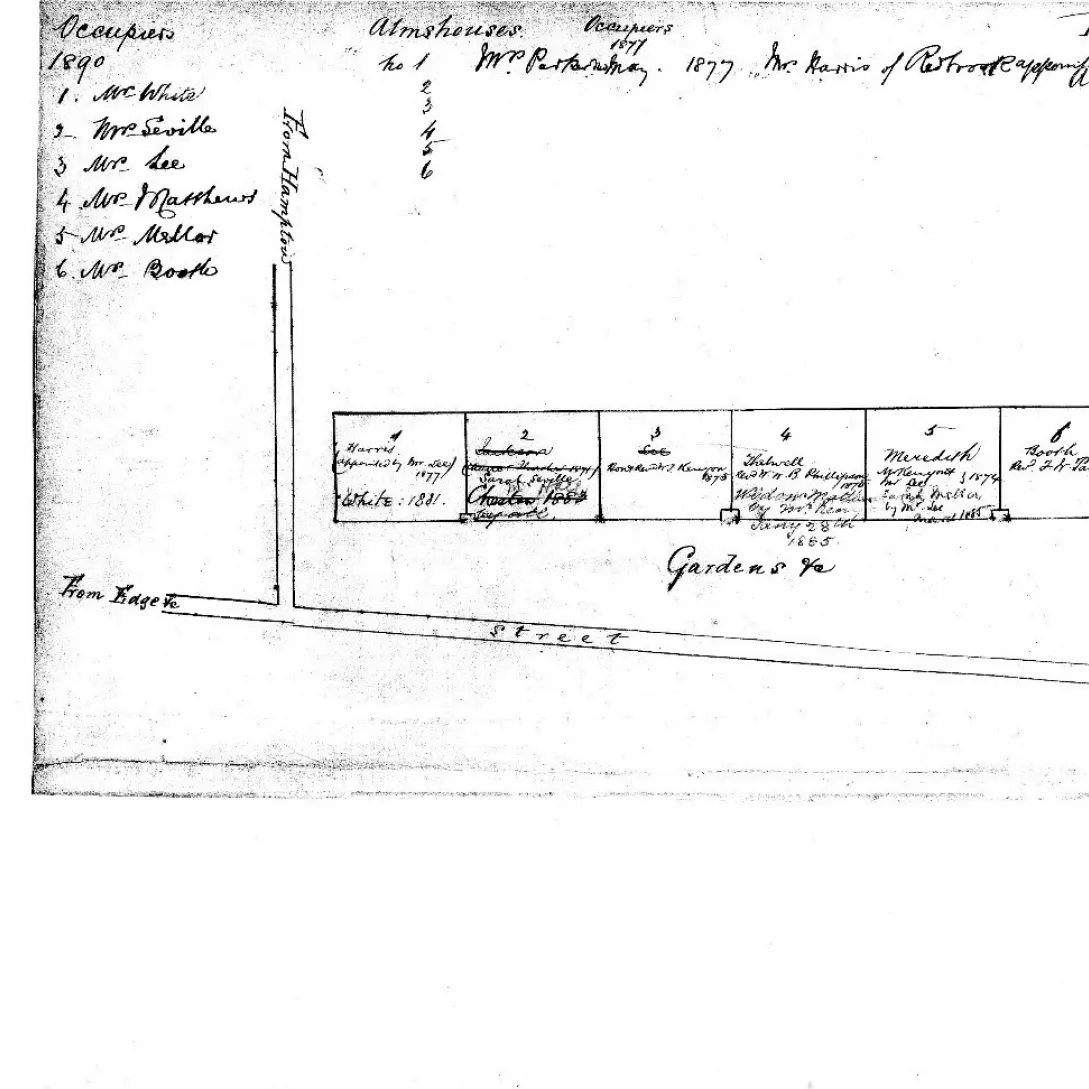 Occupiers
1890
1. Mr White
2 Mrs Seville
3 Mrs Lee
4 Mrs Matthews
5 Mrs Mellor
6. Mrs Booth
Almshouses.
Occupiers
1877
No 1
Mrs Parker May. 1877 Mrs Harris of Redbrook
2
3
4
5
6
From Hampton
1
Harris
(appointed by Mr. Lee)
1877
White: 1881.
2
Jackson
Sarah Seville
Chester 1883
3
Lee
Kenyon
1875
4
Thelwell
Revd W. B. Phillipson
1876
Widow
by Mr Ken
Jany 28th
1885.
5
Meredith
Mr Lee
1874
Sarah Mellor
by Mr Lee
1885
6
Booth
Gardens &c
From Edge &c
Street